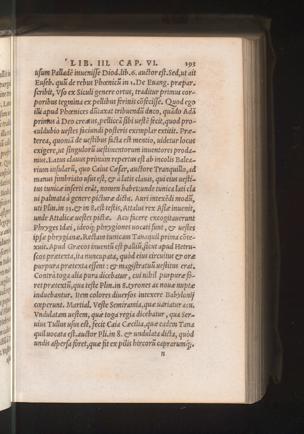 LIB. III. CAP. VI. 193
usum Palladē inuenisse Diod.lib.6. auctor est. Sed, ut ait
Euseb. qui de rebus Phœnicū in 1. De Euang. præpar.
scribit, Vso ex Siculi genere ortus, traditur primus cor-
poribus tegmina ex pellibus ferinis cōfecisse. Quod ego
illi apud Phœnices duxat tribuendū duco, quādo Adā
primus à Deo creatus, pelliceā sibi uestē fecit, quod pro-
culdubio uestes faciundi posteris exemplar extitit. Præ-
terea, quoniā de uestibus facta est mentio, uidetur locus
exigere, ut singulorū uestimentorum inuentores proda-
mus. Latus clauus primùm repertus est ab incolis Balea-
rium insularū, quo Caius Cæsar, auctore Tranquillo, ad
manus fimbriato usus est, & à latis clauis, qui eius uesti-
tus tunicæ inserti erāt, nomen habet: unde tunica lati cla
ui palmata à genere picturæ dicta. Auri intexēdi modū,
uti Plin. in 33. & in 8. est testis, Attalus rex Asiæ inuenit,
unde Attalicæ uestes pictæ. Acu facere excogitauerunt
Phryges Idæi, ideoq; phrygiones uocati sunt, & uestes
ipsæ phrygianæ. Rectam tunicam Tanaquil prima cōte-
xuit. Apud Græcos inuentū est pallium, sicut apud Hetru-
scos prætexta, ita nuncupata, quòd eius circuitus & oræ
purpura prætexta essent: & magistratuū uestitus erat.
Contrà toga alia pura dicebatur, cui nihil purpuræ fo-
ret prætextū, qua teste Plin. in 8. tyrones ac nouæ nuptæ
induebantur. Item colores diuersos intexere Babylonij
cœperunt. Martial. Veste Semiramia, quæ uariatur acu.
Vndulatam uestem, quæ toga regia dicebatur, qua Ser-
uius Tullus usus est, fecit Caia Cæcilia, quæ eadem Tana
quil uocata est. auctor Pli. in 8. & undulata dicta, quòd
undis aspersa foret, quæ fit ex pilis hircorū caprarumq́;.
n